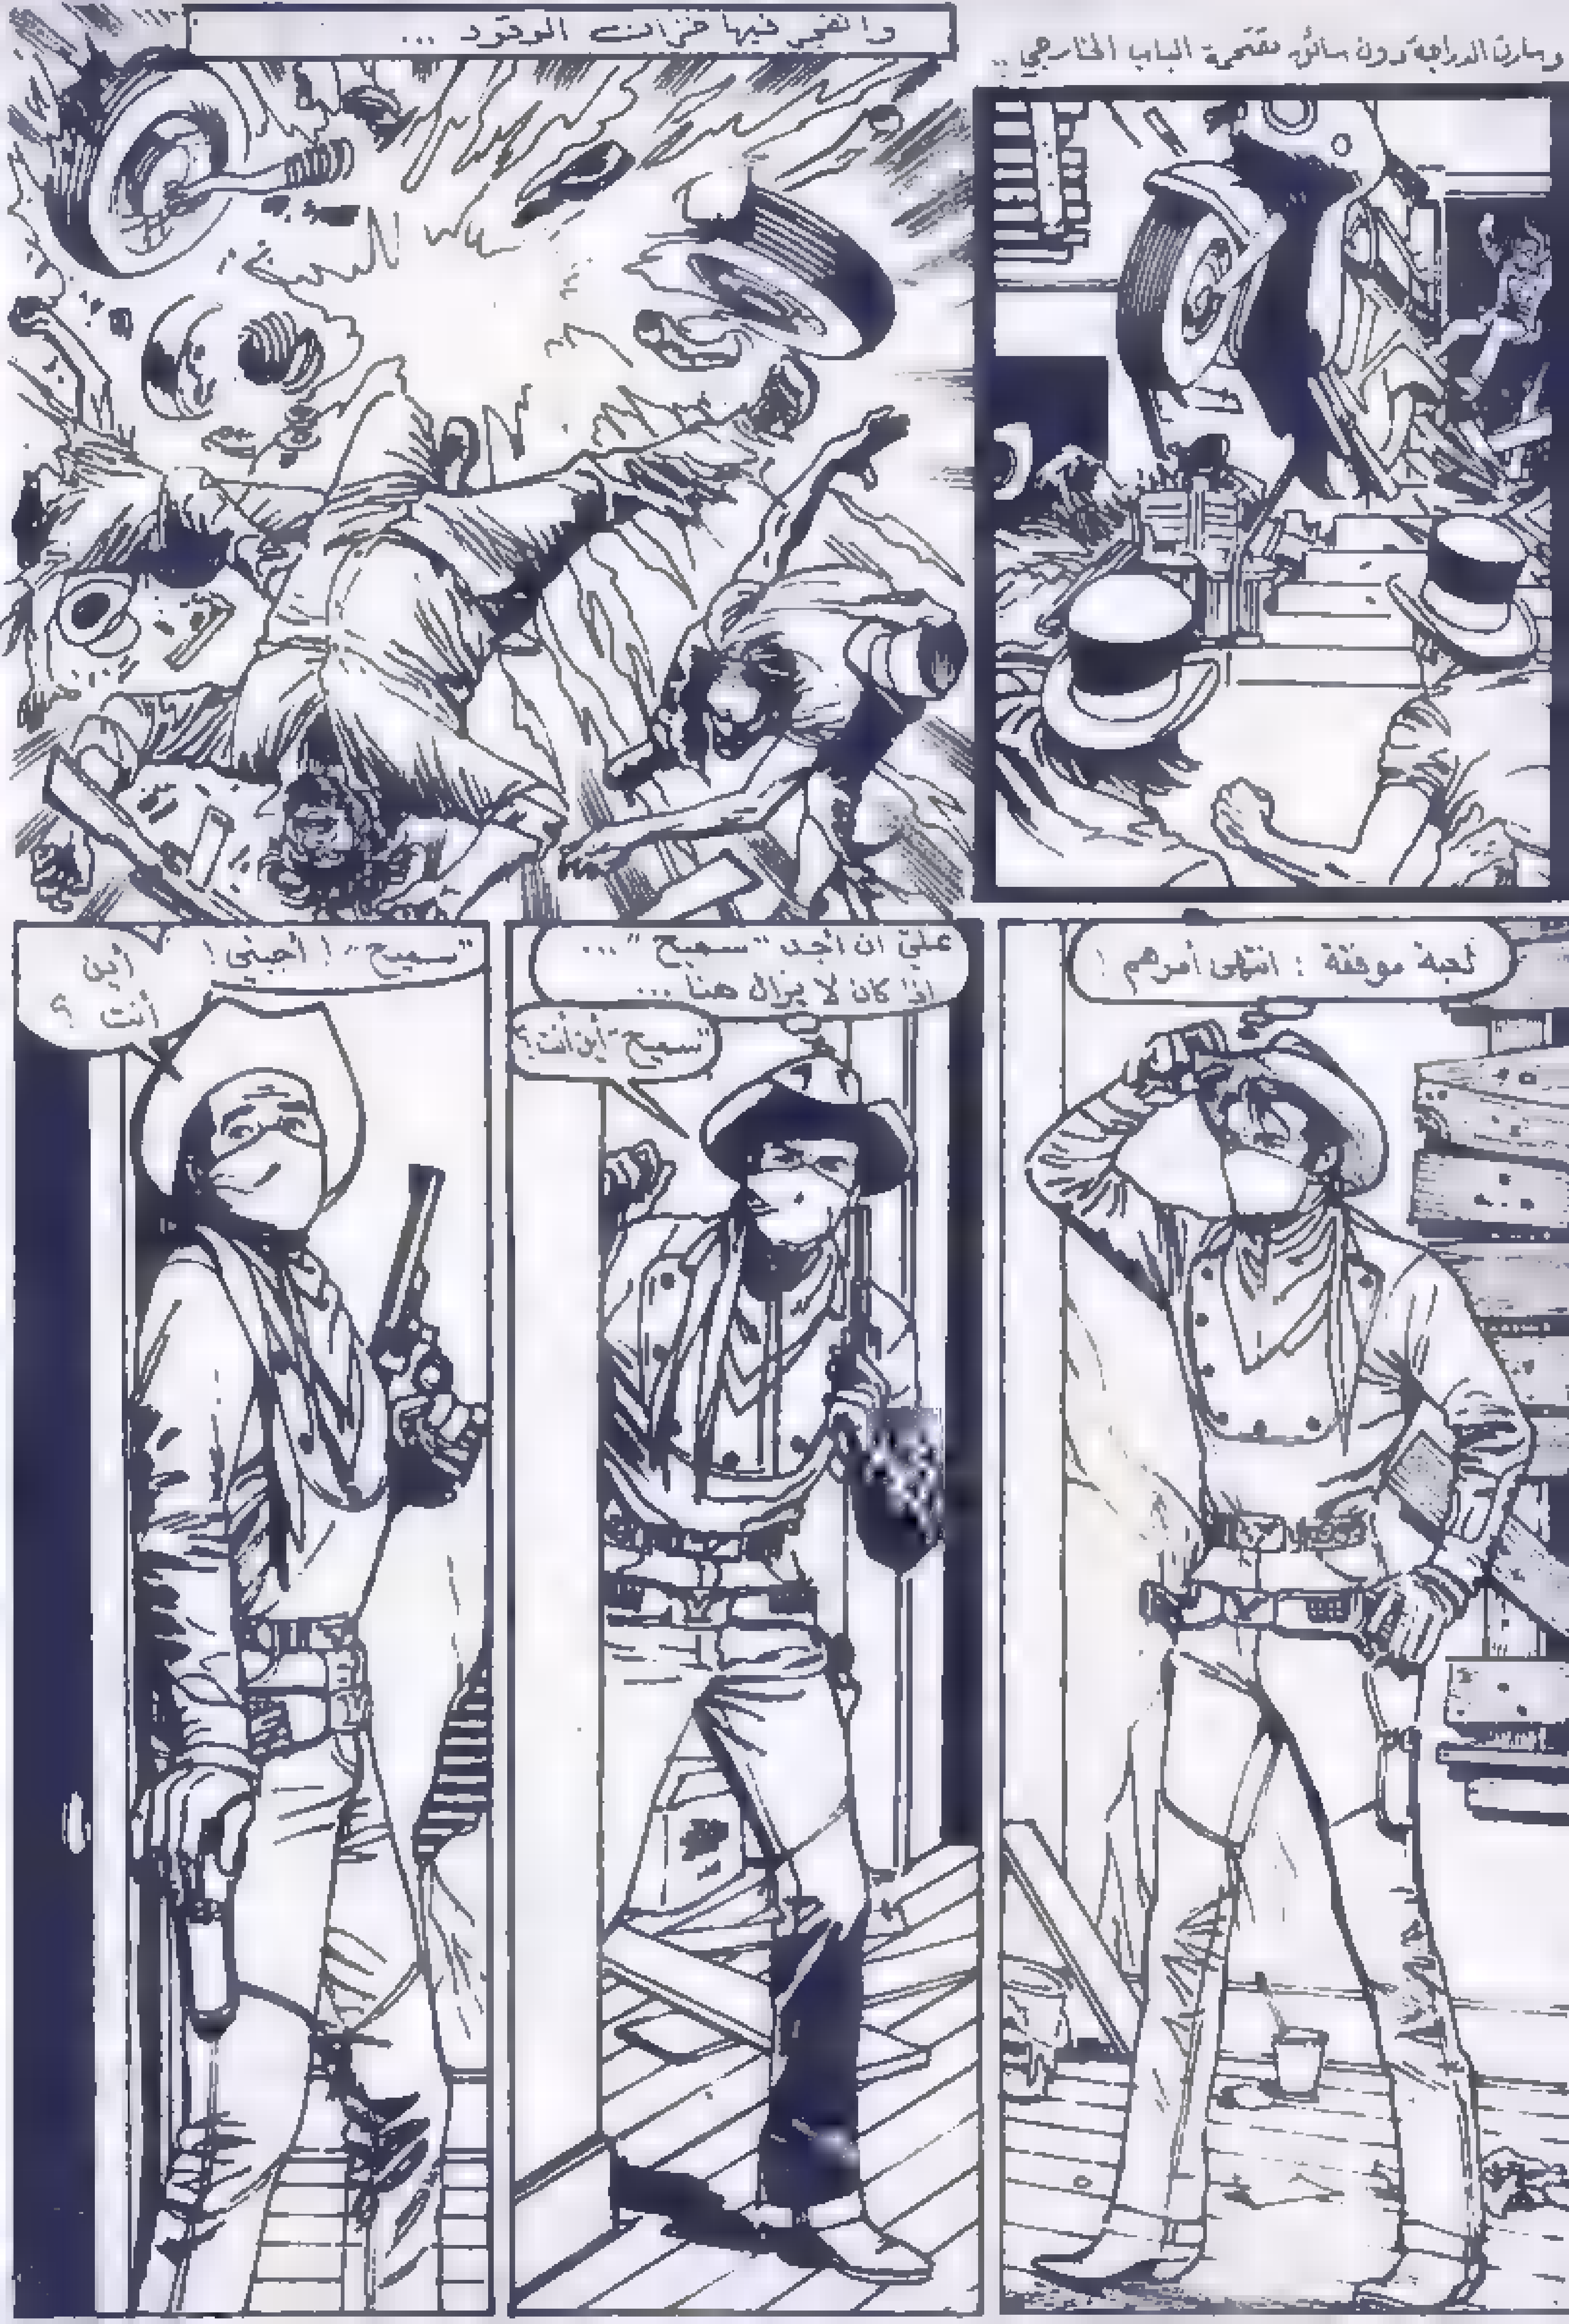 وسارت الدراجة دون سائق مقتحمة الباب الخارجي ..
وانفجر فيها خزانت الوقود ...
لعبة موفقة : انتهى أمرهم !
عليّ ان أجد "سميح" ...
اذا كان لا يزال هنا ...
"سميح" أين أنت ؟
"سميح" ! أجبني !
أين
أنت ؟